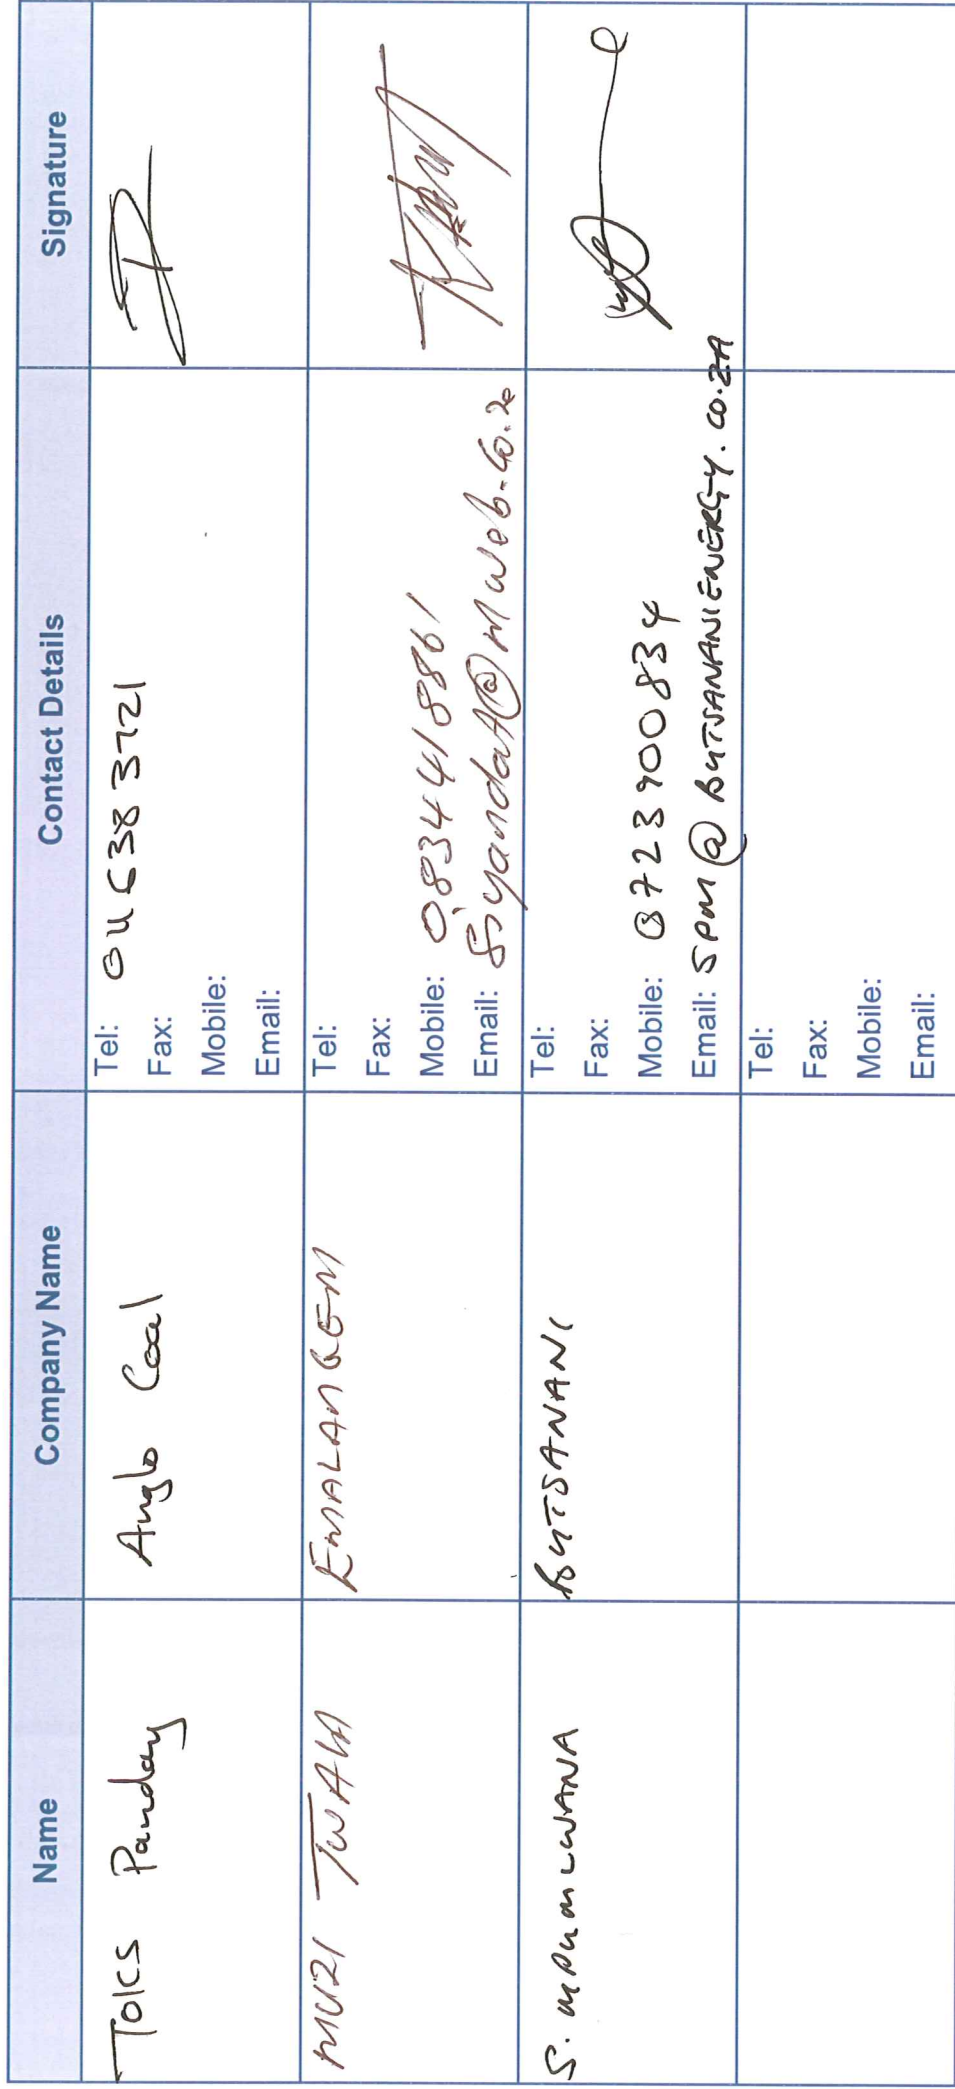 Name Company Name Contact Details Signature
Tolcs Panday Anglo Coal Tel: 011 638 3721
Fax:
Mobile:
Email:
MUZI TWALA EMALANGENI Tel:
Fax:
Mobile: 0834418861
Email: SiyandaA@mweb.co.za
S. MPUMLWANA BUTSANANI Tel:
Fax:
Mobile: 0723900834
Email: SPM@BUTSANANIENERGY.CO.ZA
Tel:
Fax:
Mobile:
Email: